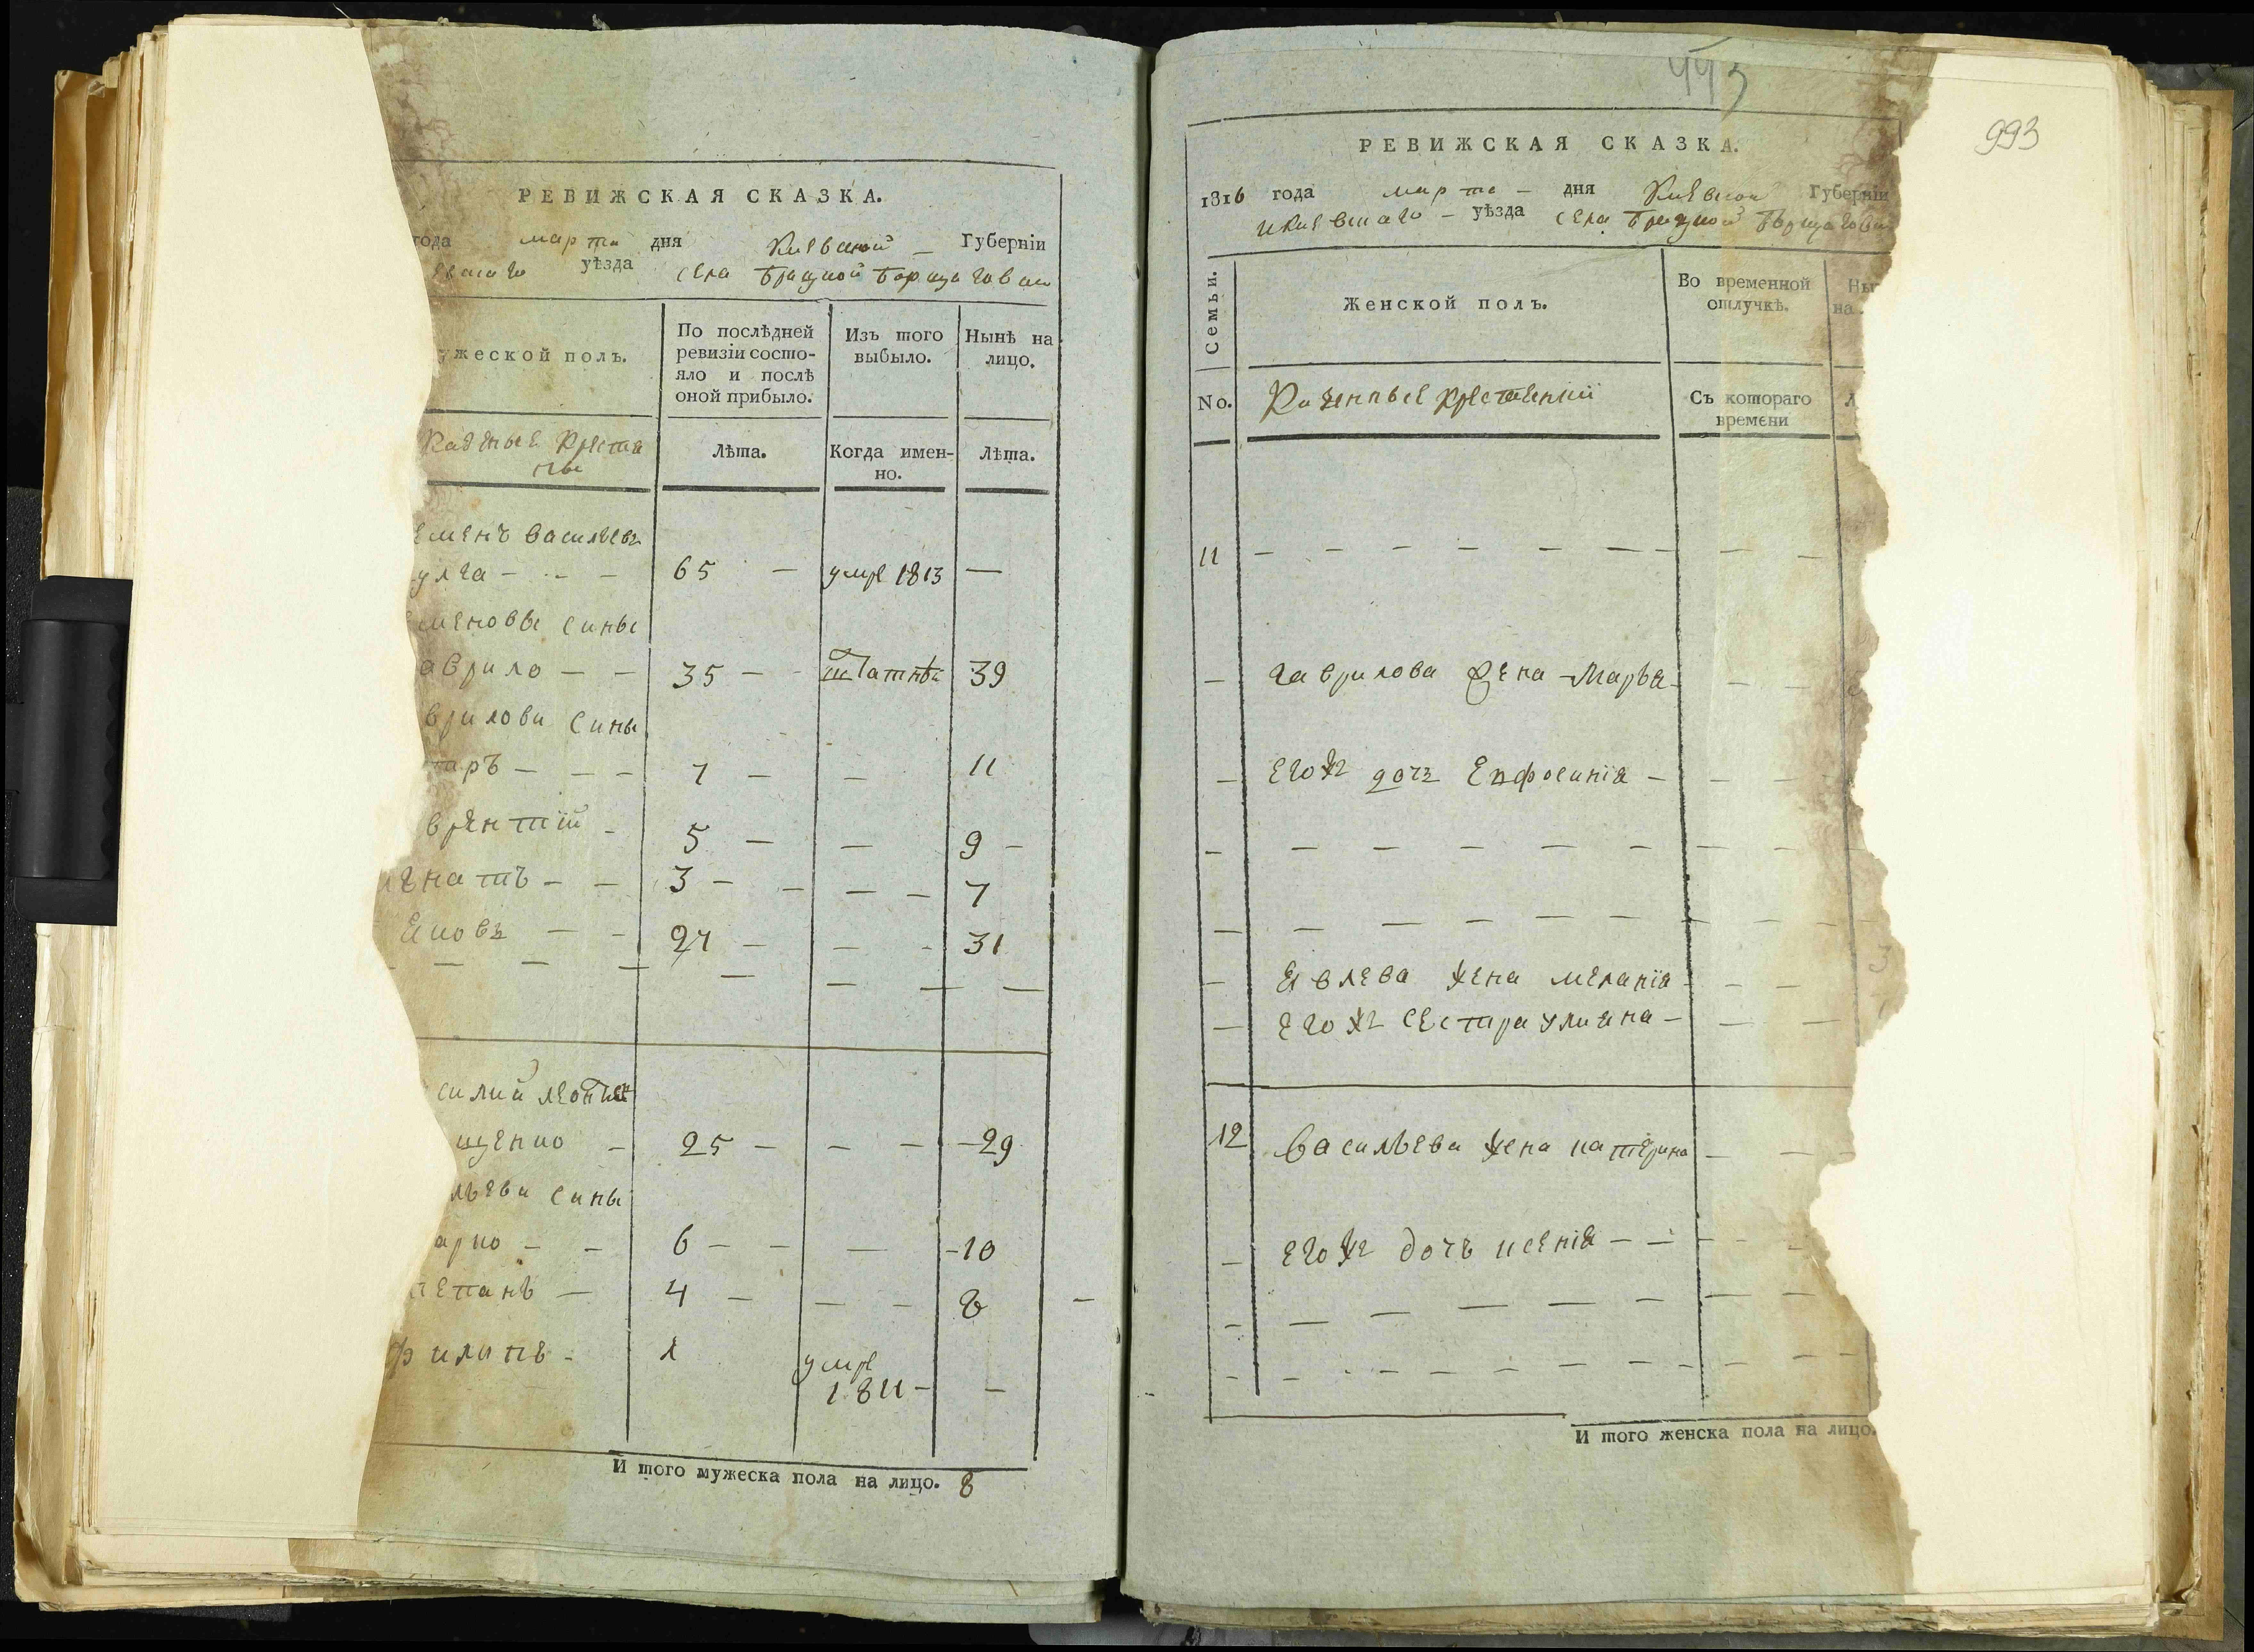 РЕВИЖСКАЯ СКАЗКА.
года марта дня Киевской Губерніи
уѣзда села Братской Борщаговки
ужеской полъ.
По послѣдней ревизіи состо-
яло и послѣ
оной прибыло.
Изъ того
выбыло.
Нынѣ на
лицо.
Казеные Крестя
не
Лѣта.
Когда имен-
но.
Лѣта.
еменъ васильевъ
улга - - - 65 - умре 1813 —
меновы сины
аврило - - 35 - - 39
врилови сины
таръ - - - 7 - - 11
врентій - 5 - - 9 -
игнатъ - - 3 - - - - 7
яковъ - - 27 - - - 31
силий леонтиев
щенко - 25 - - - - 29
льеви сины
арко - - 6 - - - - 10
тепанъ - 4 - - - 8
филипъ - 1 умре
1811 - -
И того мужеска пола на лицо. 8
443
993
РЕВИЖСКАЯ СКАЗКА.
1816 года марта - дня Киевской Губерніи
Киевскаго - уѣзда села Братской Борщаговки
Семьи.
Женской полъ.
Во временной
отлучкѣ.
Ны
на
No.
Казенные крестянки
Съ котораго
времени
11 - - - - - - - - -
- гаврилова жена - Марья - - -
- егоже дочъ Евфросинія - - -
- - - - - - - - -
- - - - - - - - -
- Явлева жена меланія - - - 3
- егоже сестра улияна - - -
12 васильева жена катерина - - -
- егоже дочъ ксенія - - - - -
- - - - - - - -
- - - - - - - - - -
И того женска пола на лицо.